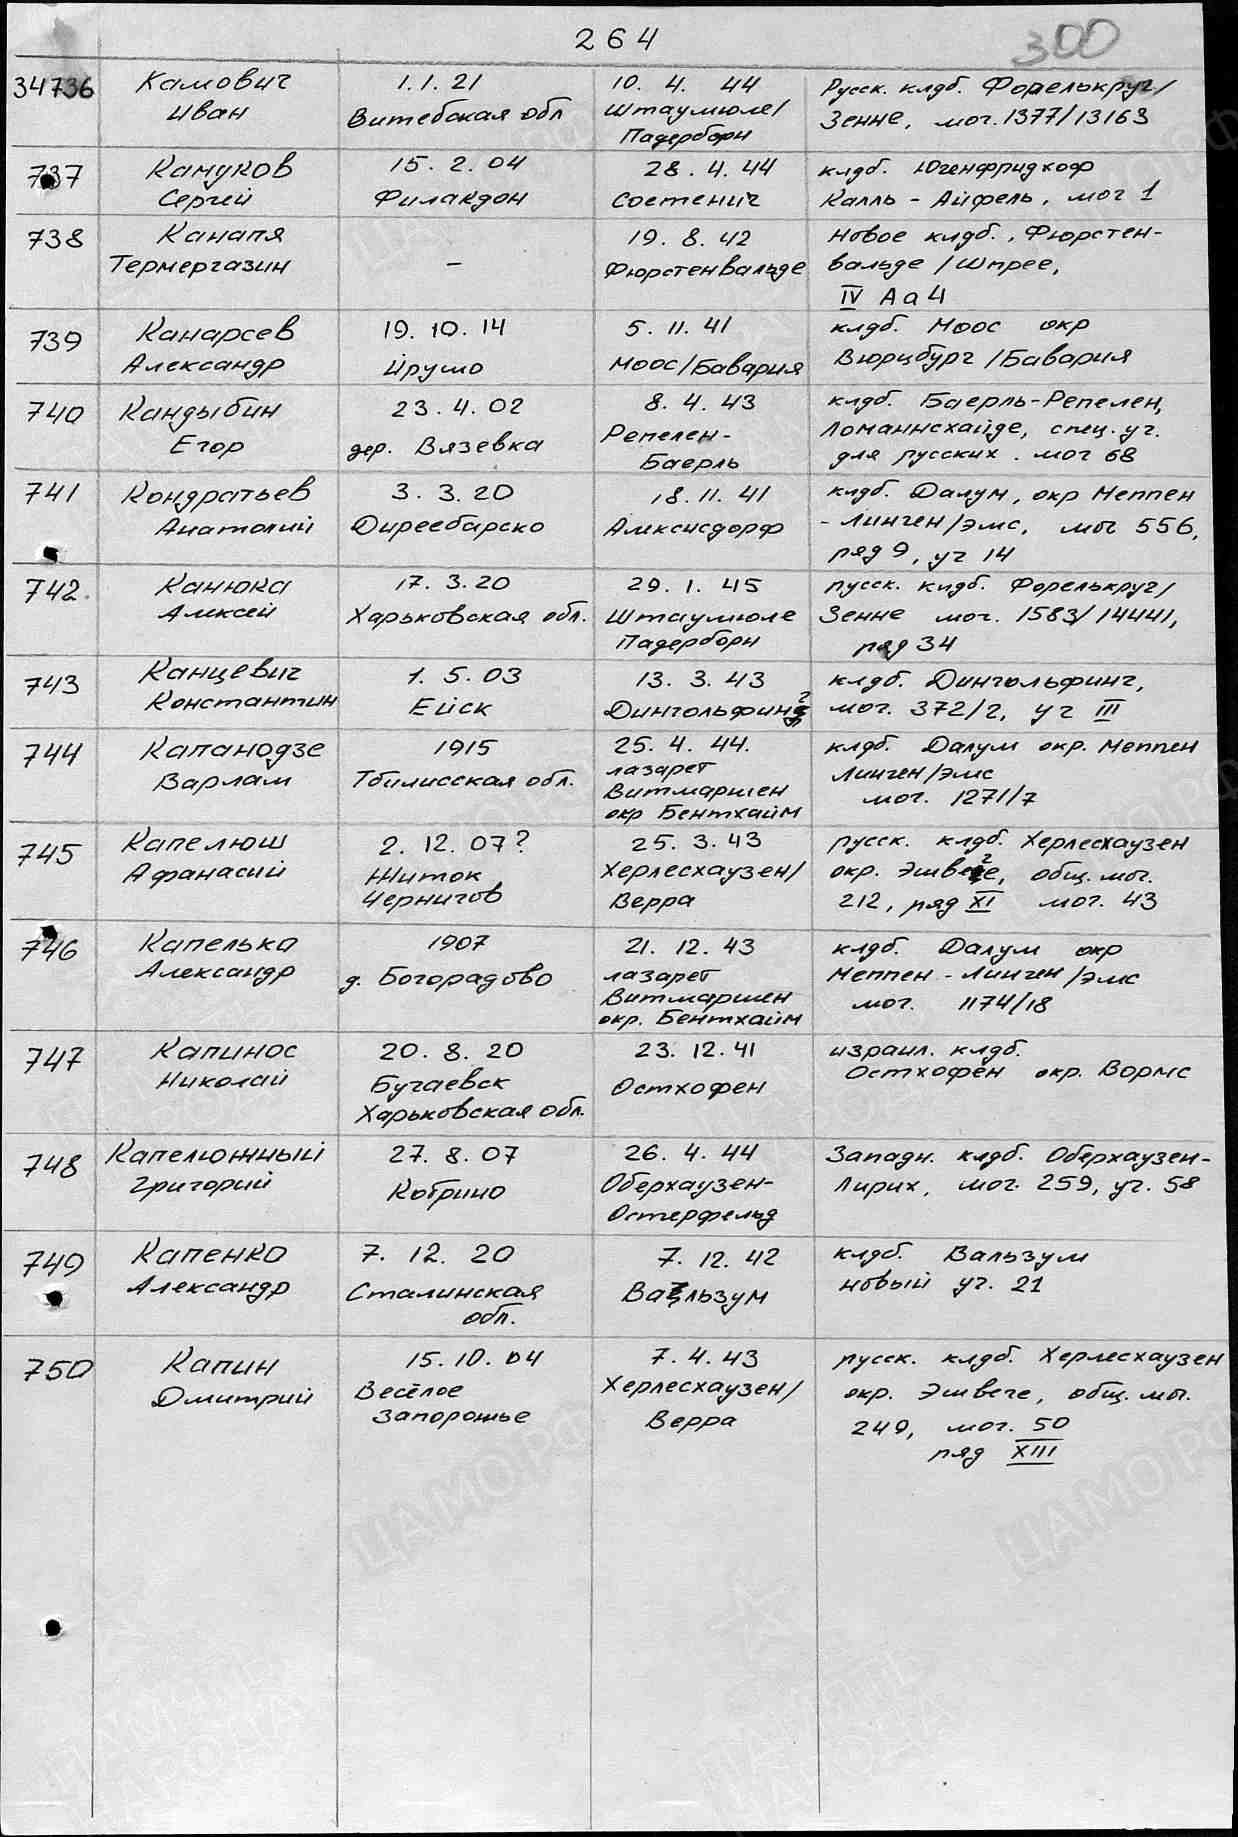 264
300
34736 Камович 1.1.21 10. 4. 44 Русск. клдб. Форелькруг/
Иван Витебская обл Штаумюле/ Зенне, мог. 1377/13163
Падерборн
737 Камуков 15. 2. 04 28. 4. 44 клдб. Югенфридхоф
Сергей Филакдон Соетенич Калль - Айфель, мог 1
738 Канапя 19. 8. 42 Новое клдб., Фюрстен-
Термергазин – Фюрстенвальде вальде / Шпрее,
IV Аа4
739 Канарсев 19. 10. 14 5. 11. 41 клдб. Моос окр
Александр Ирумо Моос/Бавария Вюрцбург /Бавария
740 Кандыбин 23. 4. 02 8. 4. 43 клдб. Баерль-Репелен,
Егор дер. Вязевка Репелен- Ломаннсхайде, спец. уч.
Баерль для русских. мог 68
741 Кондратьев 3. 3. 20 18. 11. 41 клдб. Далум, окр Меппен
Анатолий Диреебарско Алексисдорф - Линген/Эмс, мог 556,
ряд 9, уч 14
742. Канюка 17. 3. 20 29. 1. 45 русск. клдб. Форелькруг/
Алексей Харьковская обл. Штаумюле Зенне мог. 1583/14441,
Падерборн ряд 34
743 Канцевич 1. 5. 03 13. 3. 43 клдб. Дингольфинг,
Константин Ейск Дингольфинг мог. 372/2, уч III
744 Капанодзе 1915 25. 4. 44. клдб. Далум окр. Меппен
Варлам Тбилисская обл. лазарет Линген/Эмс
Витмаршен мог. 1271/7
окр Бентхайм
745 Капелюш 2. 12. 07? 25. 3. 43 русск. клдб. Херлесхаузен
Афанасий Житок Херлесхаузен/ окр. Эшвеге, общ. мог.
Чернигов Верра 212, ряд XI мог. 43
746 Капелько 1907 21. 12. 43 клдб. Далум окр
Александр д. Богорадово лазарет Меппен - Линген/Эмс
Витмаршен мог. 1174/18
окр. Бентхайм
747 Капинос 20. 8. 20 23. 12. 41 израил. клдб.
Николай Бугаевск Остхофен Остхофен окр. Вормс
Харьковская обл.
748 Капелюжный 27. 8. 07 26. 4. 44 Западн. клдб. Оберхаузен-
Григорий Кобрино Оберхаузен- Лирих, мог. 259, уч. 58
Остерфельд
749 Капенко 7. 12. 20 7. 12. 42 клдб. Вальзум
Александр Сталинская Вальзум новый уч. 21
обл.
750 Капин 15. 10. 04 7. 4. 43 русск. клдб. Херлесхаузен
Дмитрий Весёлое Херлесхаузен/ окр. Эшвеге, общ. мог.
Запорожье Верра 249, мог. 50
ряд XIII